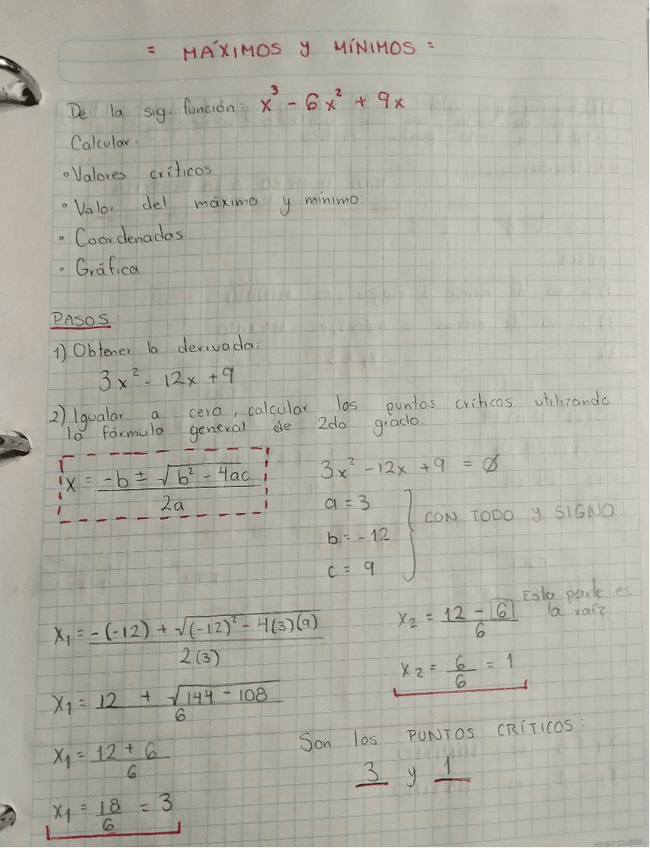 = MÁXIMOS Y MÍNIMOS =
De la sig. función: x³ - 6x² + 9x
Calcular:
• Valores críticos
• Valor del máximo y mínimo.
• Coordenadas
• Gráfica
PASOS
1) Obtener la derivada:
3x² - 12x + 9
2) Igualar a cero, calcular los puntos críticos utilizando
la fórmula general de 2do grado.
x = (-b ± √(b² - 4ac)) / 2a
3x² - 12x + 9 = 0
a = 3
b = -12
c = 9
CON TODO Y SIGNO
x₁ = (-(-12) + √((-12)² - 4(3)(9))) / 2(3)
x₁ = (12 + √(144 - 108)) / 6
x₁ = (12 + 6) / 6
x₁ = 18/6 = 3
x₂ = (12 - 6) / 6
Esta parte es
la raíz
x₂ = 6/6 = 1
Son los PUNTOS CRÍTICOS:
3 y 1